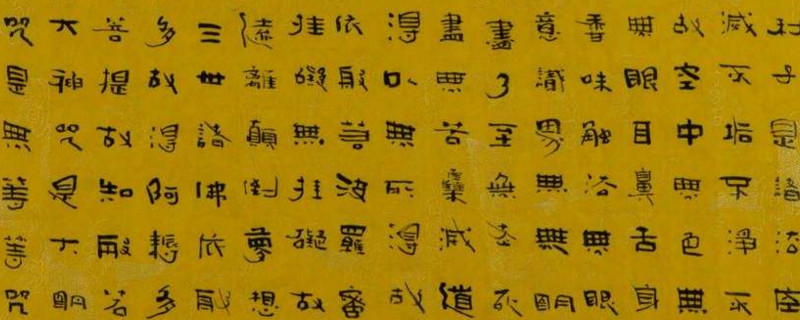 利子是諸法空
滅不垢不淨不
故空中無色無
無眼耳鼻舌身
香味觸法無眼
意識界無無明
盡乃至無老死
盡無苦集滅道
得以無所得故
依般若波羅蜜
挂礙無挂礙故
遠離顛倒夢想
三世諸佛依般
多故得阿耨多
菩提故知般若
大神咒是大明
咒是無等等咒